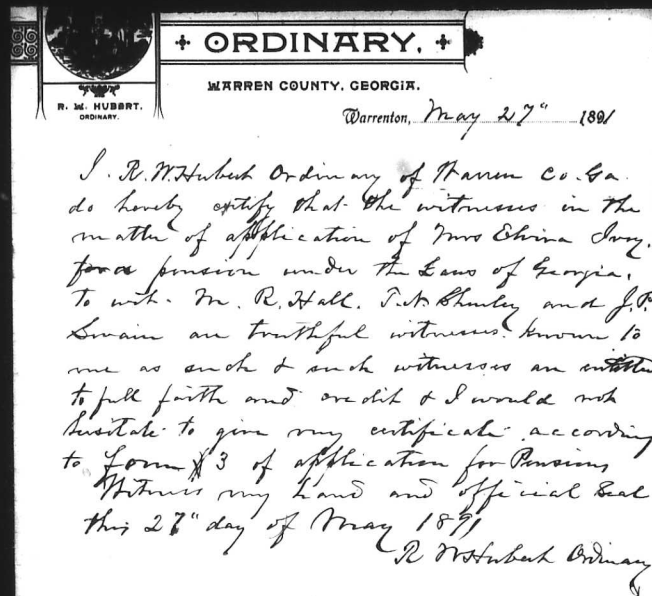 ORDINARY.
WARREN COUNTY, GEORGIA.
R. W. HUBERT,
ORDINARY.
Warrenton, May 27" 1891
I. R. W. Hubert Ordinary of Warren Co. Ga.
do hereby certify that the witnesses in the
matter of application of Mrs Elvira Ivey.
for a pension under the Laws of Georgia.
To wit. M. R. Hall. T. N. Shurley and J. P.
Swain are truthful witnesses. known to
me as such & such witnesses are entitled
to full faith and credit & I would not
hesitate to give my certificate according
to form 3 of application for Pensions
Witness my hand and official Seal
this 27" day of May 1891
R W Hubert Ordinary